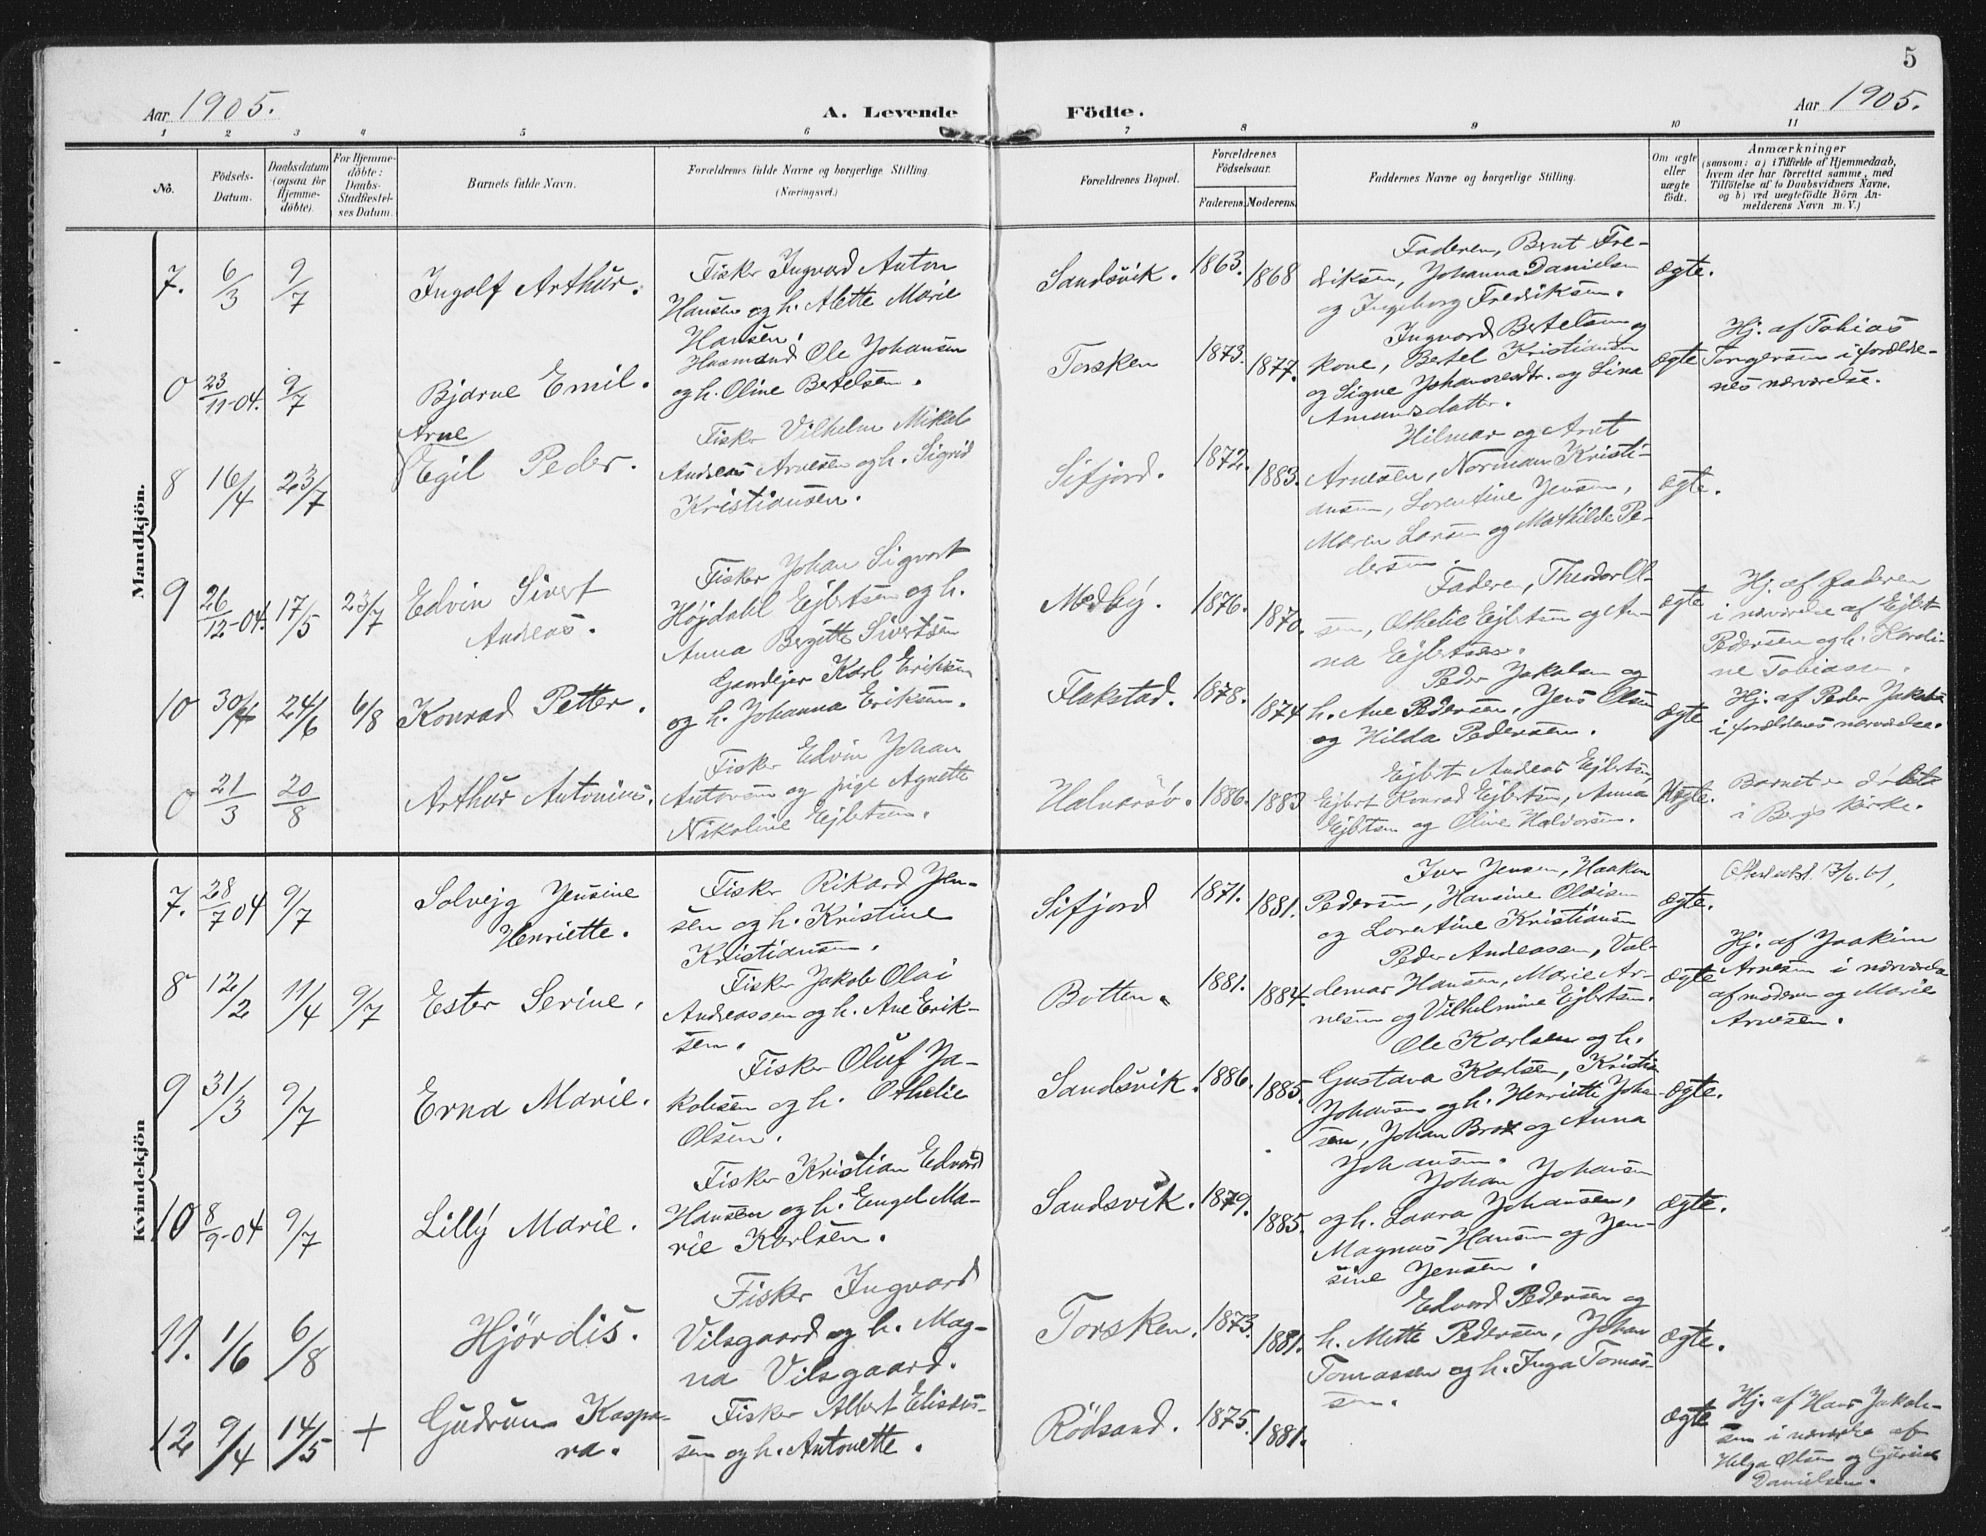 5
Aar 1905. A. Levende Födte. Aar 1905.
1 2 3 4 5 6 7 8 9 10 11
No.
Födsels-
Datum.
Daabsdatum
(ogsaa for
Hjemme-
döbte).
For Hjemme-
döbte:
Daabs-
Stadfæstel-
ses Datum.
Barnets fulde Navn.
Forældrenes fulde Navne og borgerlige Stilling.
(Næringsvei.)
Forældrenes Bopæl.
Forældrenes
Födselsaar.
Faderens. Moderens.
Faddernes Navne og borgerlige Stilling.
Om ægte
eller
uægte
födt.
Anmærkninger
(saasom: a) i Tilfælde af Hjemmedaab,
hvem der har forrettet samme, med
Tilföielse af to Daabsvidners Navne,
og b) ved uægtefödte Börn An-
melderens Navn m. V.)
Mandkjön.
7. 6/3 9/7 Ingolf Arthur.
Fisker Ingvard Anton
Hansen og h. Alette Marie
Hansen.
Sandsvik. 1863. 1868
Faderen, Bernt Fre-
driksen, Johanna Danielsen
og Ingeborg Fredriksen.
ægte.
0 23/11-04. 9/7 Bjarne Emil.
Husmand Ole Johansen
og h. Oline Bertelsen.
Torsken 1873. 1877.
Ingvard Bertelsen og
kone, Bertel Kristiansen
og Signe Johannesdtr. og Lina
Amundsdatter.
ægte
Hj. af Tobias
Tongersen i forældre-
nes nærværelse.
Arne
8 16/4 23/7 Egil Peder.
Fisker Vilhelm Mikal
Andreas Arnesen og h. Sigrid
Kristiansen.
Sifjord. 1872. 1883.
Hilmar og Arnt
Arnesen, Norman Kristi-
ansen, Lorentine Jensen,
Maren Larsen og Mathilde Pe-
dersen.
ægte.
9 26/12-04. 17/5 23/7 Edvin Sivert
Andreas.
Fisker Johan Sigvart
Højdahl Ejbertsen og h.
Anna Bergitte Sivertsen
Medby. 1876. 1870.
Faderen, Theodor Ol-
sen, Othelie Ejbertsen og An-
na Ejbertsen.
ægte
Hj. af faderen
i nærværelse af Ejbert
Pedersen og h. Kardi-
ne Tobiassen.
10 30/4 24/6 6/8 Konrad Petter.
Gaardejer Karl Eriksen
og h. Johanna Eriksen.
Flakstad. 1878. 1874
Peder Jakobsen og
h. Ane Pedersen, Jens Olsen
og Hilda Pedersen.
ægte
Hj. af Peder Jakobsen
i forældrenes nærværelse.
0 21/3 20/8 Arthur Antonius.
Fisker Edvin Johan
Antonsen og pige Agnette
Nikoline Ejbertsen.
Halvarsøv. 1886. 1883
Ejbert Andreas Ejbertsen,
Ejbert Konrad Ejbertsen, Anna
Ejbertsen og Oline Halvorsen.
Uægte.
Barnet er døbt
i Bergs kirke.
Kvindekjön
7. 28/7 04 9/7 Solvejg Jensine
Henriette.
Fisker Rikard Jen-
sen og h. Kristine
Kristiansen.
Sifjord 1871. 1881.
Iver Jensen, Haakon
Pedersen, Hansine Olaisen
og Lorentine Kristiansen
ægte.
17/6. 61,
8 12/2 11/4 9/7 Ester Serine.
Fisker Jakob Olai
Andreassen og h. Ane Erik-
sen.
Botten. 1881. 1884.
Peder Andreassen, Val-
demar Hansen, Marie Ar-
nesen og Vilhelmine Ejbertsen.
ægte
Hj. af Joakim
Arnesen i nærværelse
af moderen og Marie
Arnesen.
9 31/3 9/7 Erna Marie.
Fisker Oluf Ja-
kobsen og h. Othelie
Olsen.
Sandsvik. 1886. 1885.
Ole Karlsen og h.
Gustava Karlsen, Kristian
Johansen og h. Henriette Johan-
sen, Johan Brox og Anna
Johansen.
ægte.
10 8/9-04 9/7 Lilly Marie.
Fisker Kristian Edvard
Hansen og h. Engel Ma-
rie Karlsen.
Sandsvik. 1879. 1885.
Johan Johansen
og h. Laura Johansen,
Magnus Hansen og Jen-
sine Jensen.
ægte.
11. 1/6 6/8 Hjördis.
Fisker Ingvard
Vilsgaard og h. Mag-
na Vilsgaard.
Torsken. 1873. 1881.
Edvard Pedersen og
h. Mette Pedersen, Johan
Tomassen og h. Inga Tomas-
sen.
ægte.
12 9/4 14/5 + Gudrun Kaspa-
ra.
Fisker Albert Elisæus-
sen og h. Antonette.
Rödsand. 1875. 1881.
ægte
Hj. af Hans Jakob-
sen i nærværelse af
Helga Olsen og Gurine
Danielsen.